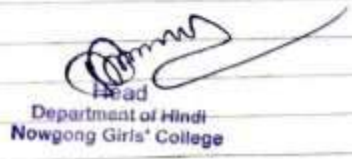 Head
Department of Hindi
Nowgong Girls' College